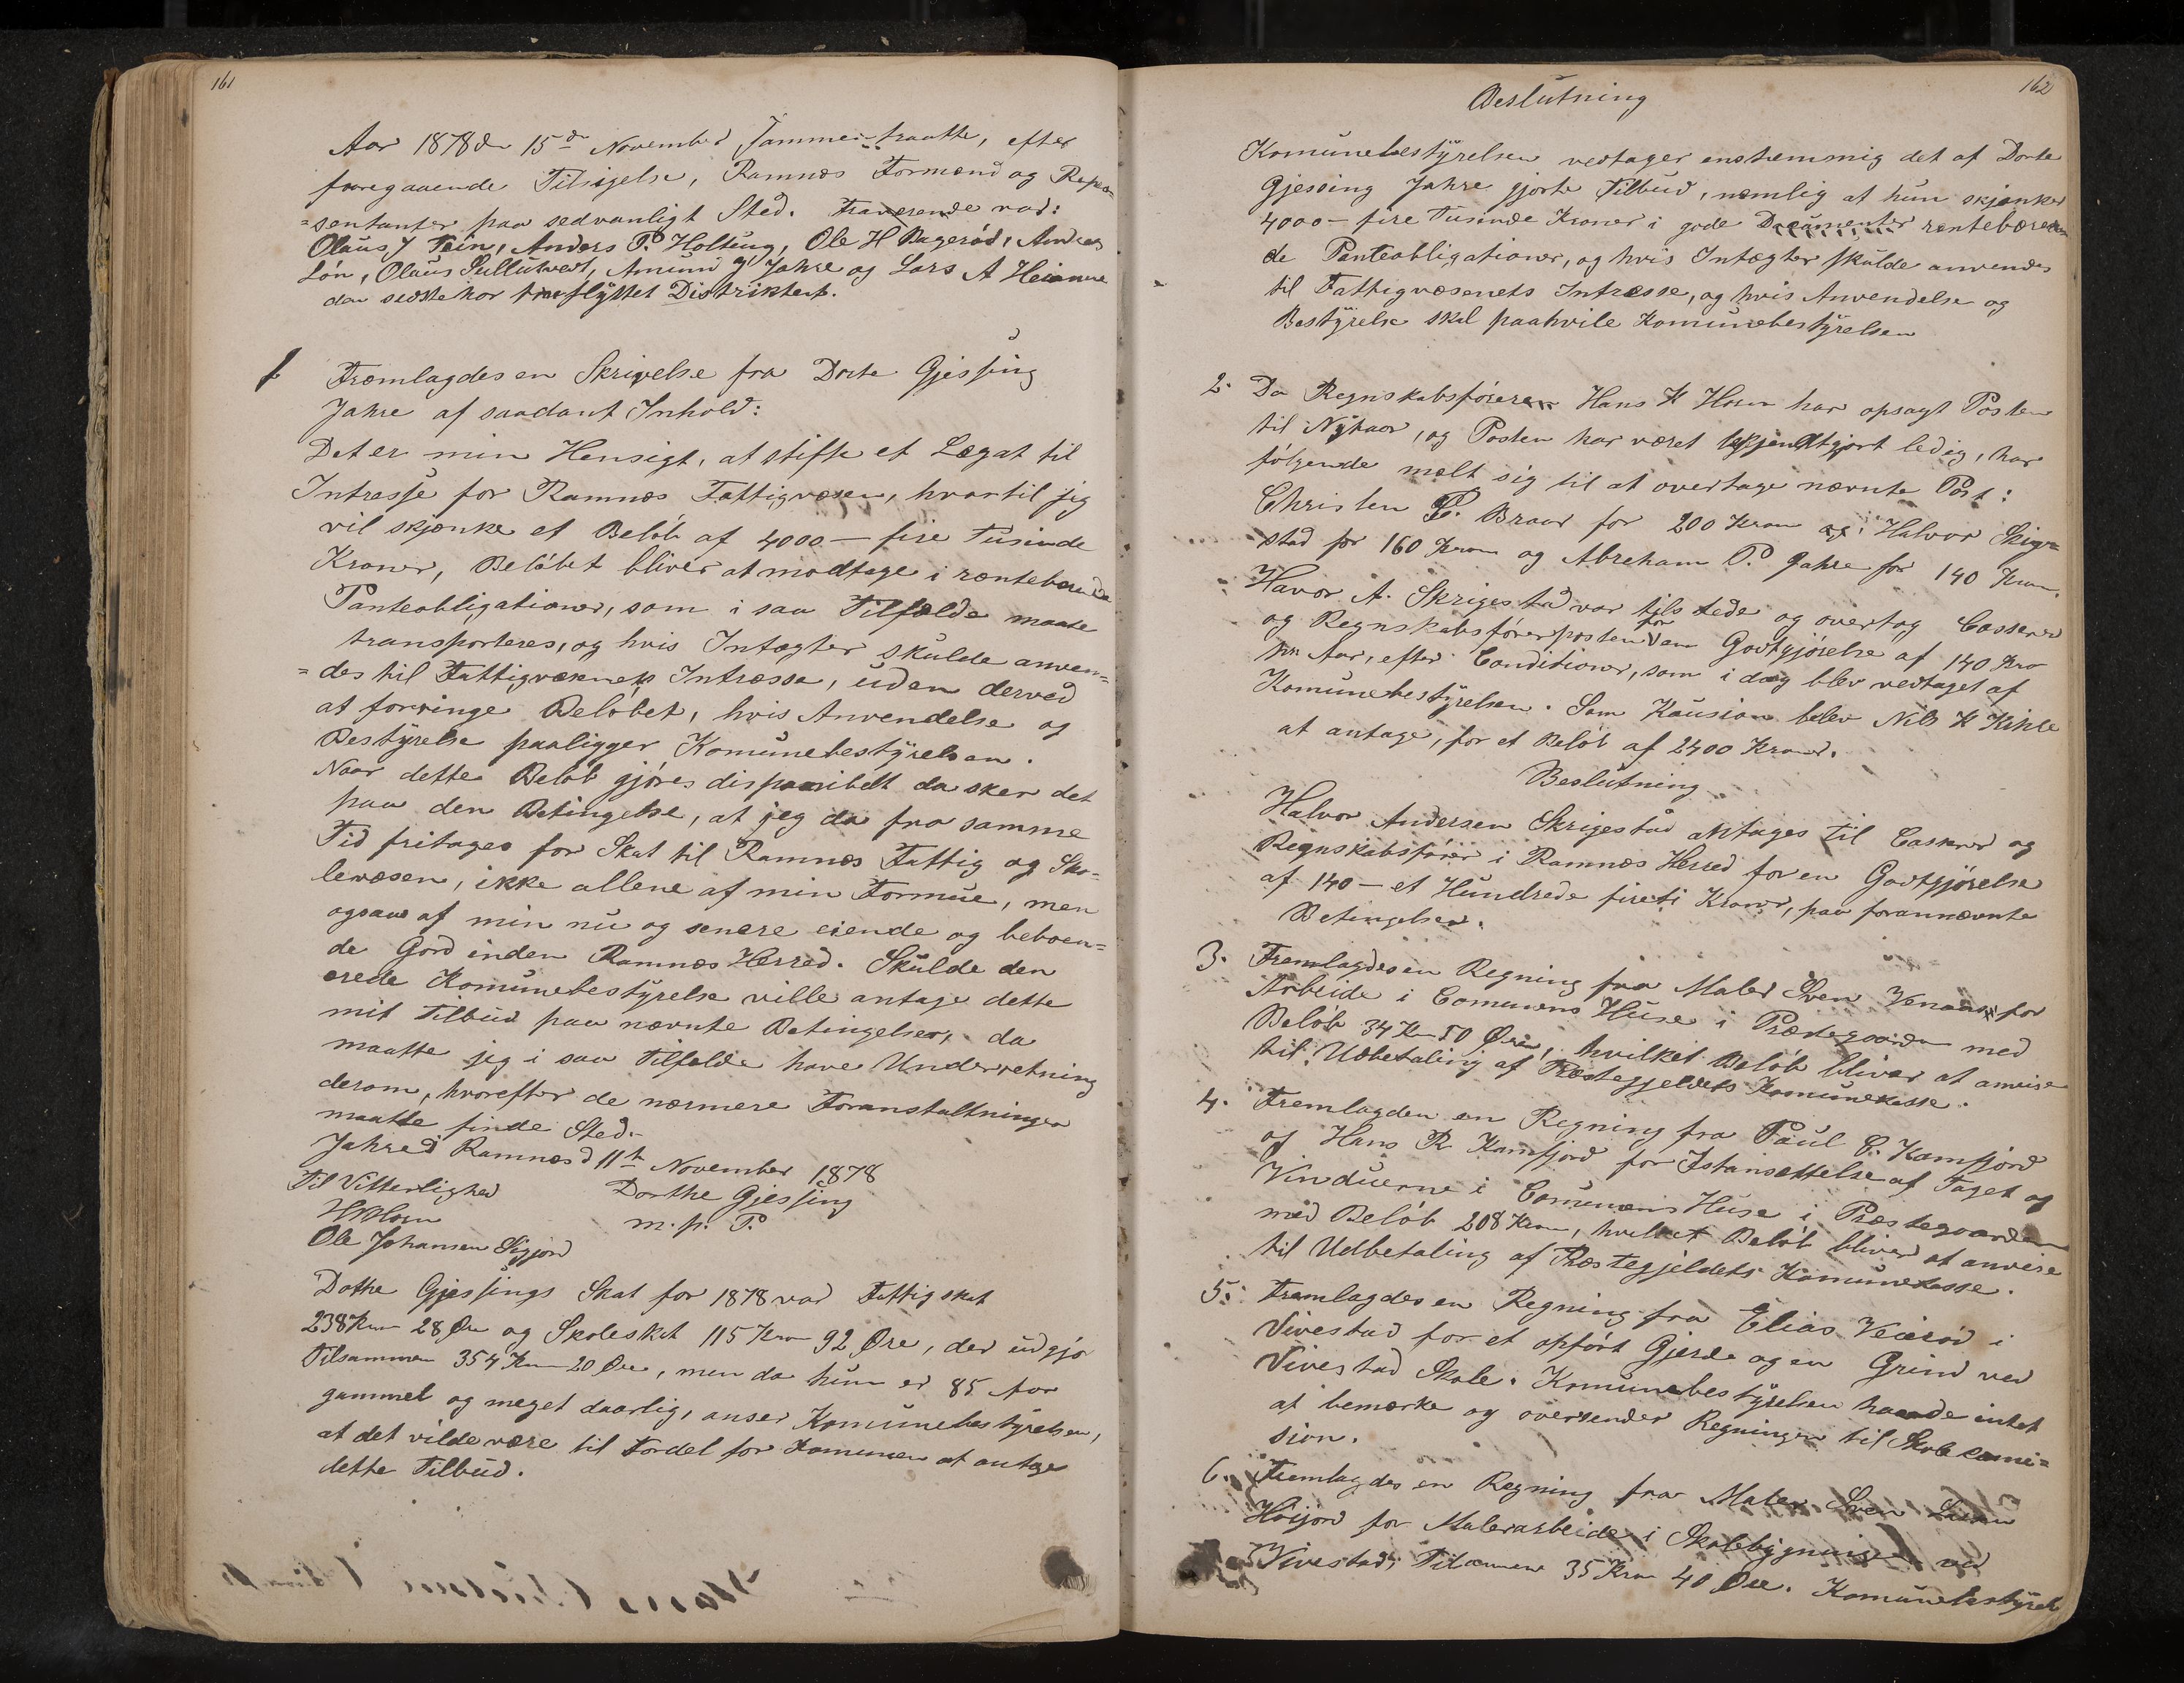 161
Aar 1878 den 15de November sammentraatte, efter
foregaaende Tilsigelse, Ramnæs Formænd og Repræ=
=sentanter paa sedvanligt Sted. Fraværende var:
Olaus J Tein, Anders P. Holtung, Ole H Bagerød, Andreas
Løn, Olaus Sullutvedt, Amund J Jahre og Lars A Heianne
den sedste har fraflyttet Distriktert.
1 Fremlagdes en Skrivelse fra Dorte Gjessing
Jahre af saadant Inhold:
Det er min Hensigt, at stifte et Legat til
Intresse for Ramnæs Fattigvæsen, hvortil jeg
vil skjænke et Beløb af 4000 — fire Tusinde
Kroner, Beløbet bliver at modtage i rentebærende
Panteobligationer, som i saa Tilfælde maate
transporteres, og hvis Intægter skulde anven=
=des til Fattigvæsnets Intresse, uden derved
at forringe Beløbet, hvis Anvendelse og
Bestyrelse paaligger Komunebestyrelsen.
Naar dette Beløb gjøres disponibelt da sker det
paa den Betingelse, at jeg da fra samme
Tid fritages for Skat til Ramnæs Fattig og Sko=
levæsen, ikke allene af min Formue, men
ogsaa af min nu og senere eiende og beboen=
de Gord inden Ramnæs Herred. Skulde den
ærede Komunebestyrelse ville antage dette
mit Tilbud paa nævnte Betingelser, da
maatte jeg i saa Tilfælde have Underretning
derom, hvorefter de nærmere Foranstaltninger
maatte finde Sted.
Jahre i Ramnæs d 11te November 1878
Til Vitterlighed Dorthe Gjessing
HKHorn m. p. P.
Ole Johansen Sigjord
Dothe Gjessings Skat for 1878 var Fattigskat
238 Kron 28 Øre og Skoleskat 115 Kron 92 Øre, der udgjø
Tilsammen 354 Kron 20 Øre, men da hun er 85 Aar
gammel og meget daarlig, anser Komunebestyrelsen,
at det vilde være til Fordel for Komunen at antage
dette Tilbud.
162
Beslutning
Komunebestyrelsen vedtager enstemmig det af Dorte
Gjessing Jahre gjorte Tilbud, nemlig at hun skjænker
4000 — fire Tusinde Kroner i gode Documenter rentebæren
de Panteobligationer, og hvis Intægter skulde anvendes
til Fattigvæsenets Intresse, og hvis Anvendelse og
Bestyrelse skal paahvile Komunebestyrelsen
2. Da Regnskabsføreren Hans K Horn har opsagt Posten
til Nytaar, og Posten har været bekjendtgjort ledig, har
følgende mælt sig til at overtage nævnte Post:
Christen P. Braar for 200 Kron og Halvor Skige=
stad for 160 Kron og Abreham P. Jahre for 140 Kron.
Havor A. Skrigestad var tilstede og overtog Casserer
og Regnskabsførerposten for en Godtgjørelse af 140 Kro
pr Aar, efter Conditioner, som i dag blev vedtaget af
Komunebestyrelsen. Som Kausion belev Nils K Kihle
at antage, for et Beløb af 2400 Kroner.
Beslutning
Halvor Andersen Skrigestad antages til Casserer og
Regnskabsfører i Ramnæs Herred for en Godtgjørelse
af 140 — et Hundrede firti Kroner, paa forannævnte
Betingelser.
3. Fremlagdes en Regning fra Maler Sven Venaas for
Arbeide i Comunens Huse i Præstegaarden med
Beløb 34 Kr 50 Øre, hvilket Beløb bliver at anvise
til Udbetaling af Præstegjeldets Komunekasse.
4. Fremlagden en Regning fra Paul C. Kamfjord
og Hans R Kamfjord for Istansættelse af Taget og
Vinduerne i Comunens Huse i Præstegaarden
med Beløb 208 Kron, hvilket Beløb bliver at anvise
til Udbetaling af Præstegjeldets Komunekasse.
5. Fremlagdes en Regning fra Elias Veierød i
Vivestad for et opført Gjerde og en Grind ved
Vivestad Skole. Komunebestyrelsen havde intet
at bemærke og oversender Regningen til Skolekomi=
sion.
6. Fremlagdes en Regning fra Maler Sven
Høijord for Malerarbeide i Skolebygningen ved
Vivestad, Tilsammen 35 Kron 40 Øre. Komunebestyrel